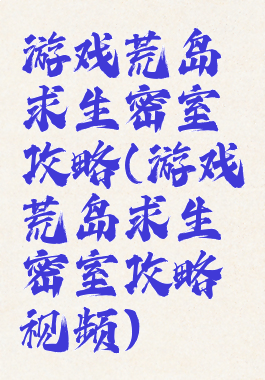 游戏荒岛
求生密室
攻略(游戏
荒岛求生
密室攻略
视频)